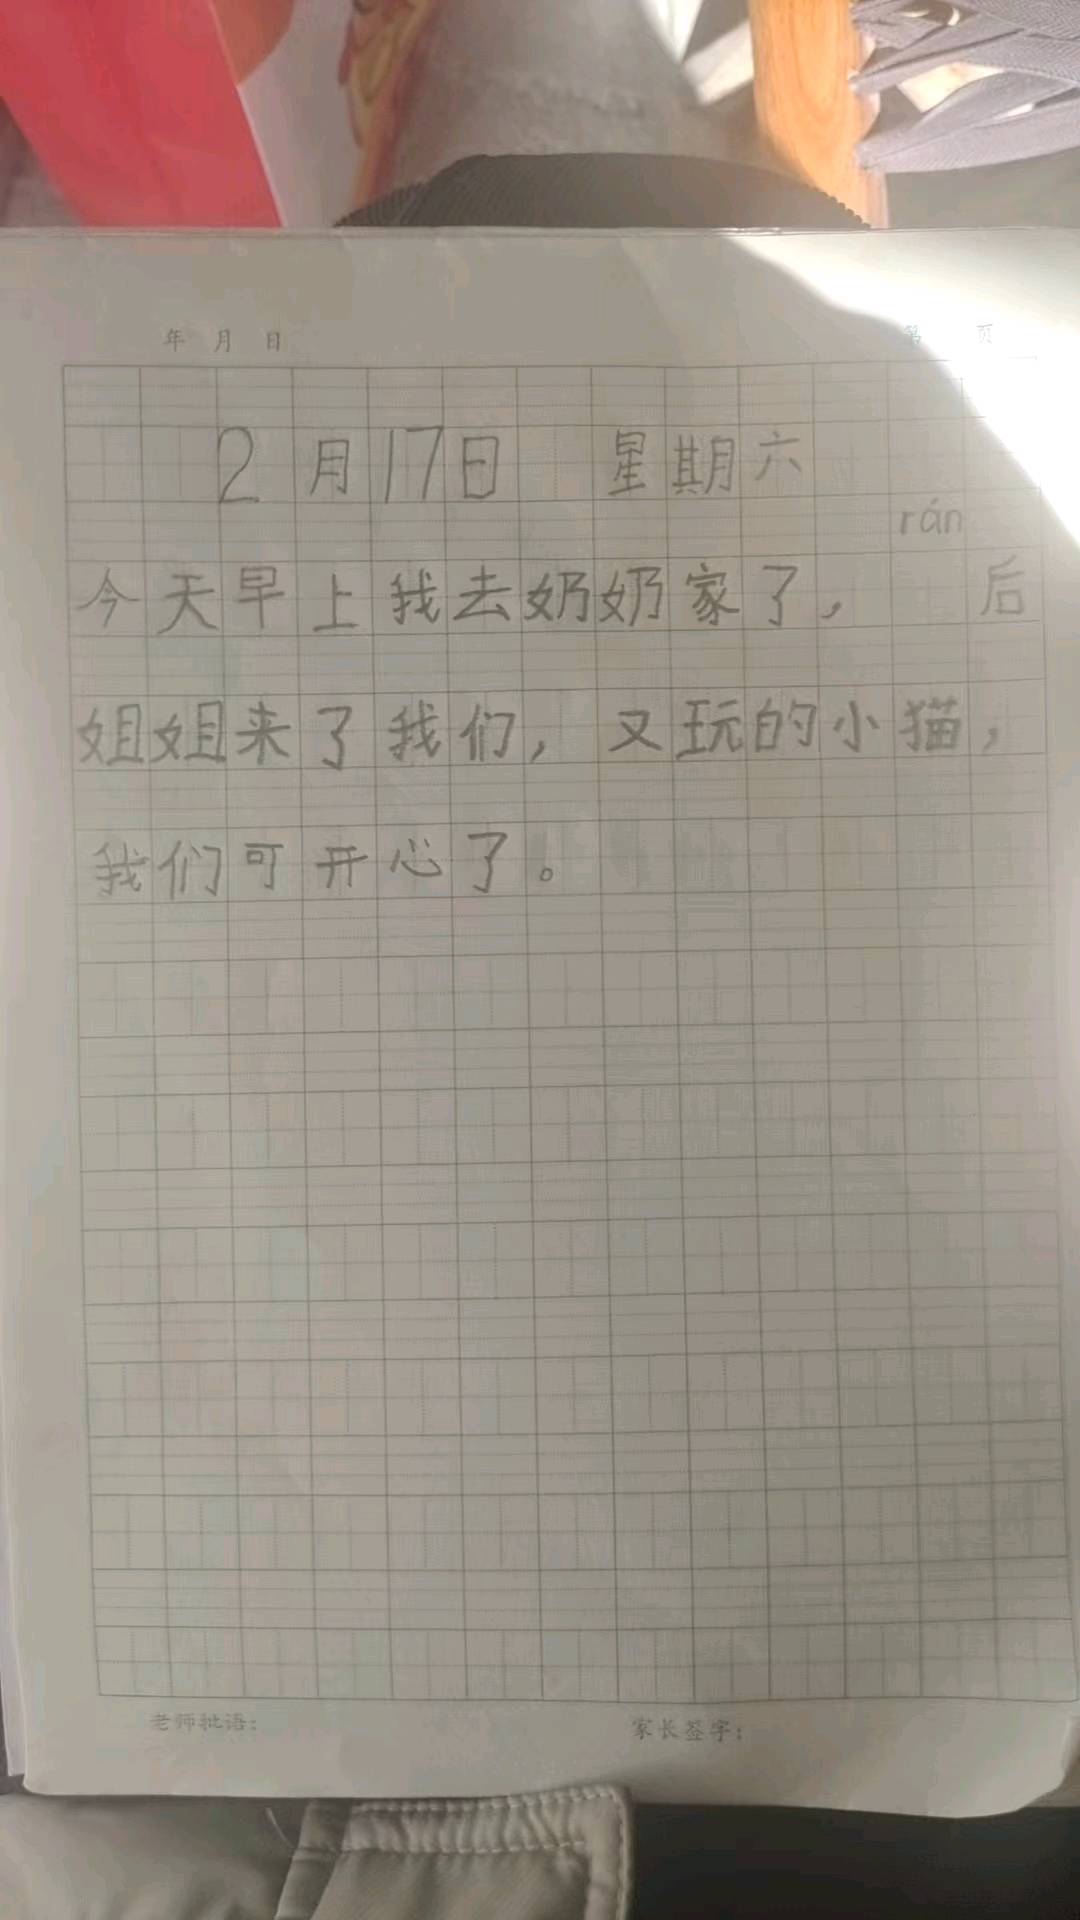 年 月 日 第 页
2月17日 星期六
rán
今天早上我去奶奶家了, 后
姐姐来了我们,又玩的小猫,
我们可开心了。
老师批语: 家长签字: